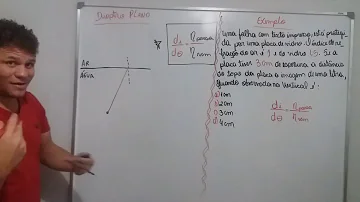 Dioptro Plano
AR
ÁGUA
di = ηpassa
do ηvem
Exemplo
Uma folha com texto impresso, está protegi
da por uma placa de vidro. O índice de re
fração do ar é 1 e do vidro 1,5. Se a
placa tiver 3cm de espessura, a distância
do topo da placa a imagem de uma letra,
quando observada na vertical é:
a) 1cm
b) 2cm
c) 3cm
d) 4cm
di = ηpassa
do ηvem